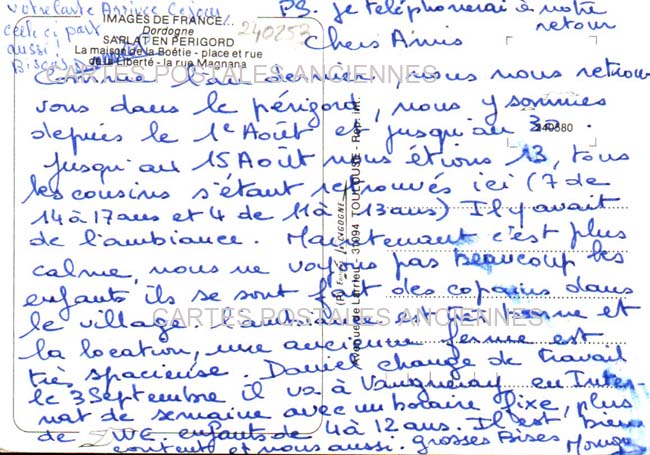 votre carte Arrivée ce jour
celle ci part
aussi !
Bises
IMAGES DE FRANCE
Dordogne
SARLAT EN PERIGORD
La maison de la Boëtie - place et rue
de la Liberté - la rue Magnana
240253
PS. je téléphonerai à notre
retour
Chers Amis
Comme l'an dernier, nous nous retrou
vons dans le périgord, nous y sommes
depuis le 1e Août et jusqu'au 30.
jusqu'au 15 Août nous étions 13, tous
les cousins s'étant retrouvés ici (7 de
14 à 17 ans et 4 de 11 à 13 ans) Il y avait
de l'ambiance. Maintenant c'est plus
calme, nous ne voyons pas beaucoup les
enfants ils se sont fait des copains dans
le village. L'ambiance est très bonne et
la location, une ancienne ferme est
très spacieuse. Daniel change de travail
le 3 Septembre il va à Vaugneray en Inter-
nat de semaine avec un horaire fixe, plus
de WE. enfants de 4 à 12 ans. Il est bien
content et nous aussi. grosses Bises
340580
Avenue de Larrieu - 31094 TOULOUSE - Rep. int.
CARTES POSTALES ANCIENNES
CARTES POSTALES ANCIENNES